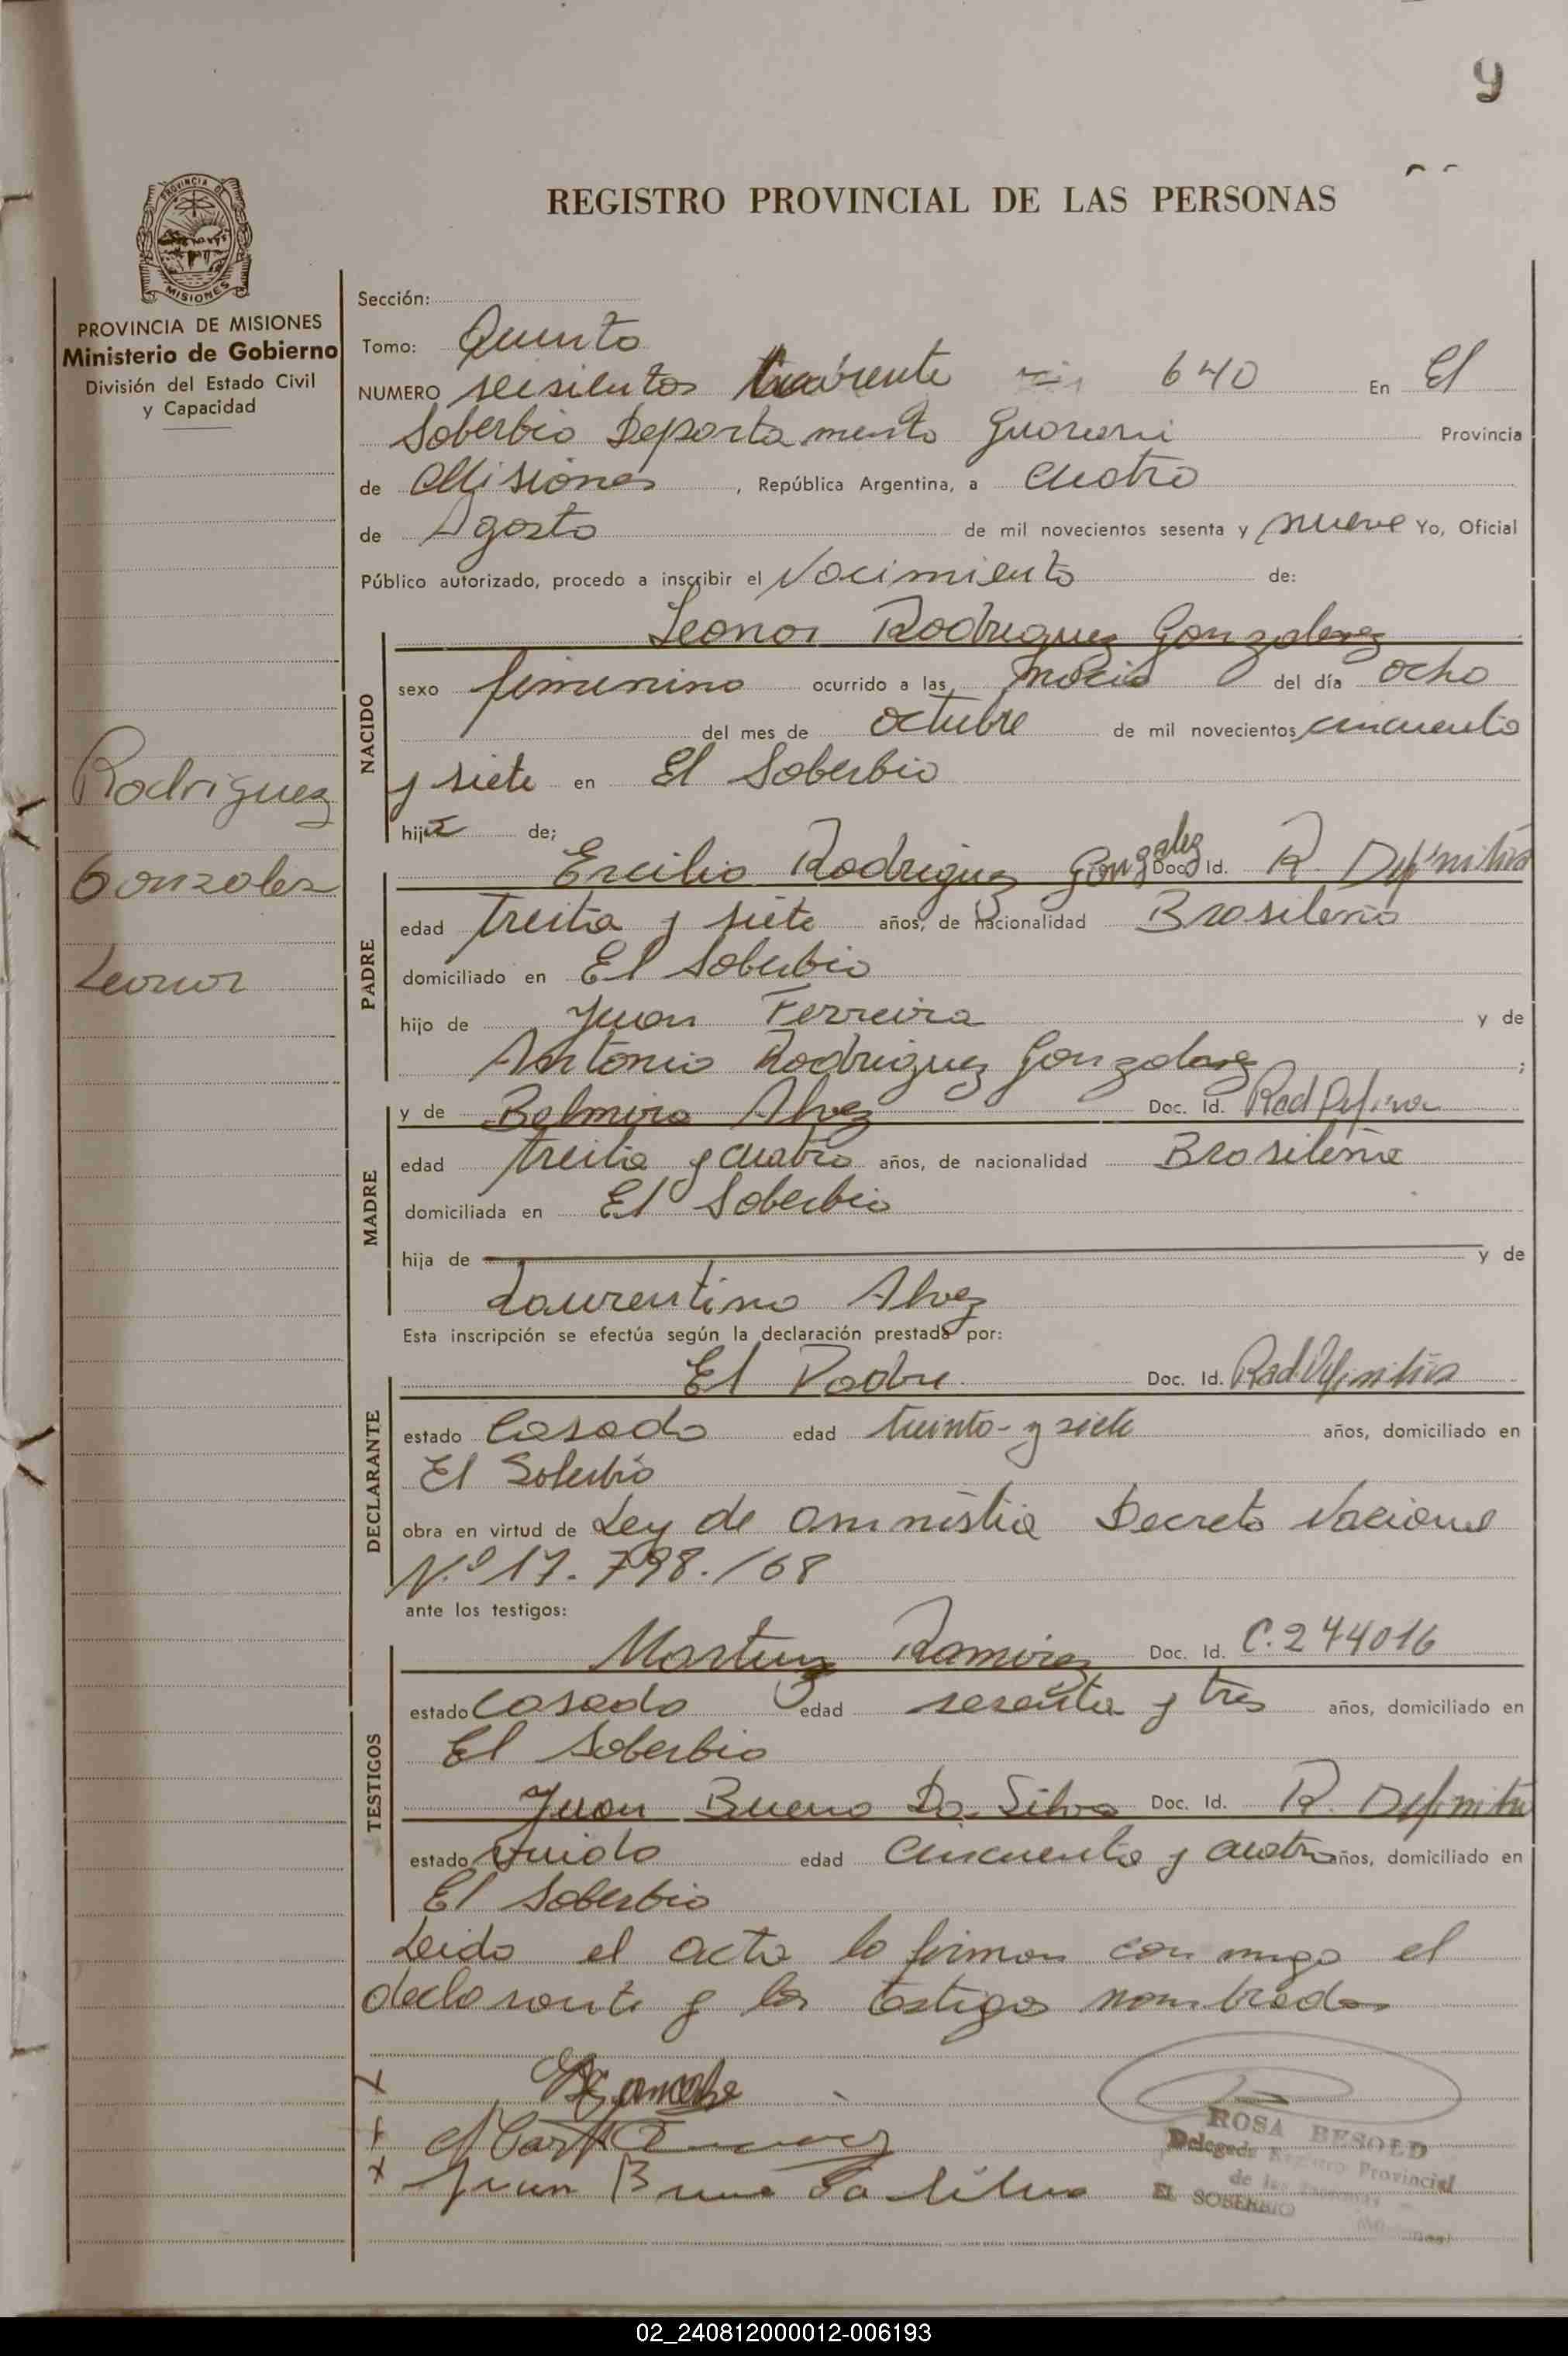 9
REGISTRO PROVINCIAL DE LAS PERSONAS
PROVINCIA DE MISIONES
PROVINCIA DE MISIONES
Ministerio de Gobierno
División del Estado Civil
y Capacidad
Rodriguez
Gonzalez
Leonor
Sección:
Tomo: Quinto
NUMERO seisientos Cuarenta 640 En El
Soberbio Departamento Guarani Provincia
de Misiones, República Argentina, a cuatro
de Agosto de mil novecientos sesenta y nueve Yo, Oficial
Público autorizado, procedo a inscribir el Nacimiento de:
Leonor Rodriguez Gonzalez
NACIDO
sexo femenino ocurrido a las del día ocho
del mes de octubre de mil novecientos cincuenta
y siete en El Soberbio
hija de;
Ercilio Rodriguez Gonzalez Doc. Id. R. Definitiva
PADRE
edad treita y siete años, de nacionalidad Brasileño
domiciliado en El Soberbio
hijo de Juan Ferreira y de
Antonia Rodriguez Gonzalez ;
y de Belmira Alvez Doc. Id. Rad
MADRE
edad treita y cuatro años, de nacionalidad Brasileña
domiciliada en El Soberbio
hija de y de
Laurentina Alvez
Esta inscripción se efectúa según la declaración prestada por:
El Padre Doc. Id. Rad. Definitiva
DECLARANTE
estado Casado edad treinta y siete años, domiciliado en
El Soberbio
obra en virtud de Ley de amnistia Decreto Nacional
Nº 17.798./68
ante los testigos:
Martinez Ramirez Doc. Id. C. 244016
TESTIGOS
estado Casado edad sesenta y tres años, domiciliado en
El Soberbio
Juan Bueno Da Silva Doc. Id. R. Definitiv
estado viudo edad cincuenta y cuatro años, domiciliado en
El Soberbio
Leido el acta lo firman con migo el
declarante y los testigos nombrados
Juan Bueno da Silva
ROSA BESOLD
Delegada Registro Provincial
de las Personas
EL SOBERBIO
(Misiones)
02_240812000012-006193